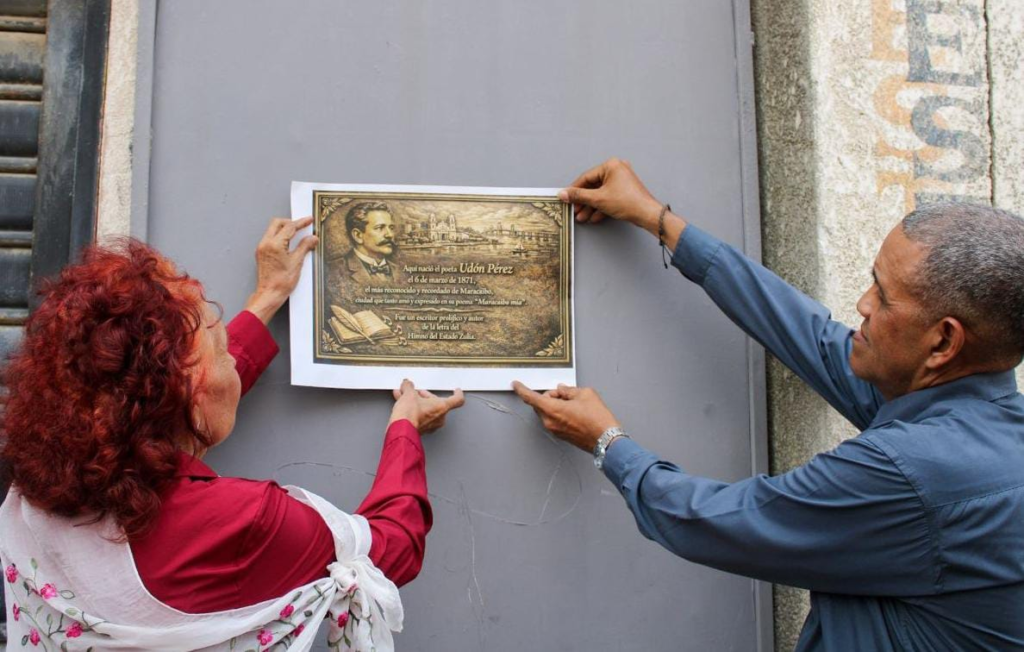 Aquí nació el poeta Udón Pérez
el 6 de marzo de 1871,
el más reconocido y recordado de Maracaibo,
ciudad que tanto amó y expresado en su poema "Maracaibo mía".
Fue un escritor prolífico y autor
de la letra del
Himno del Estado Zulia.